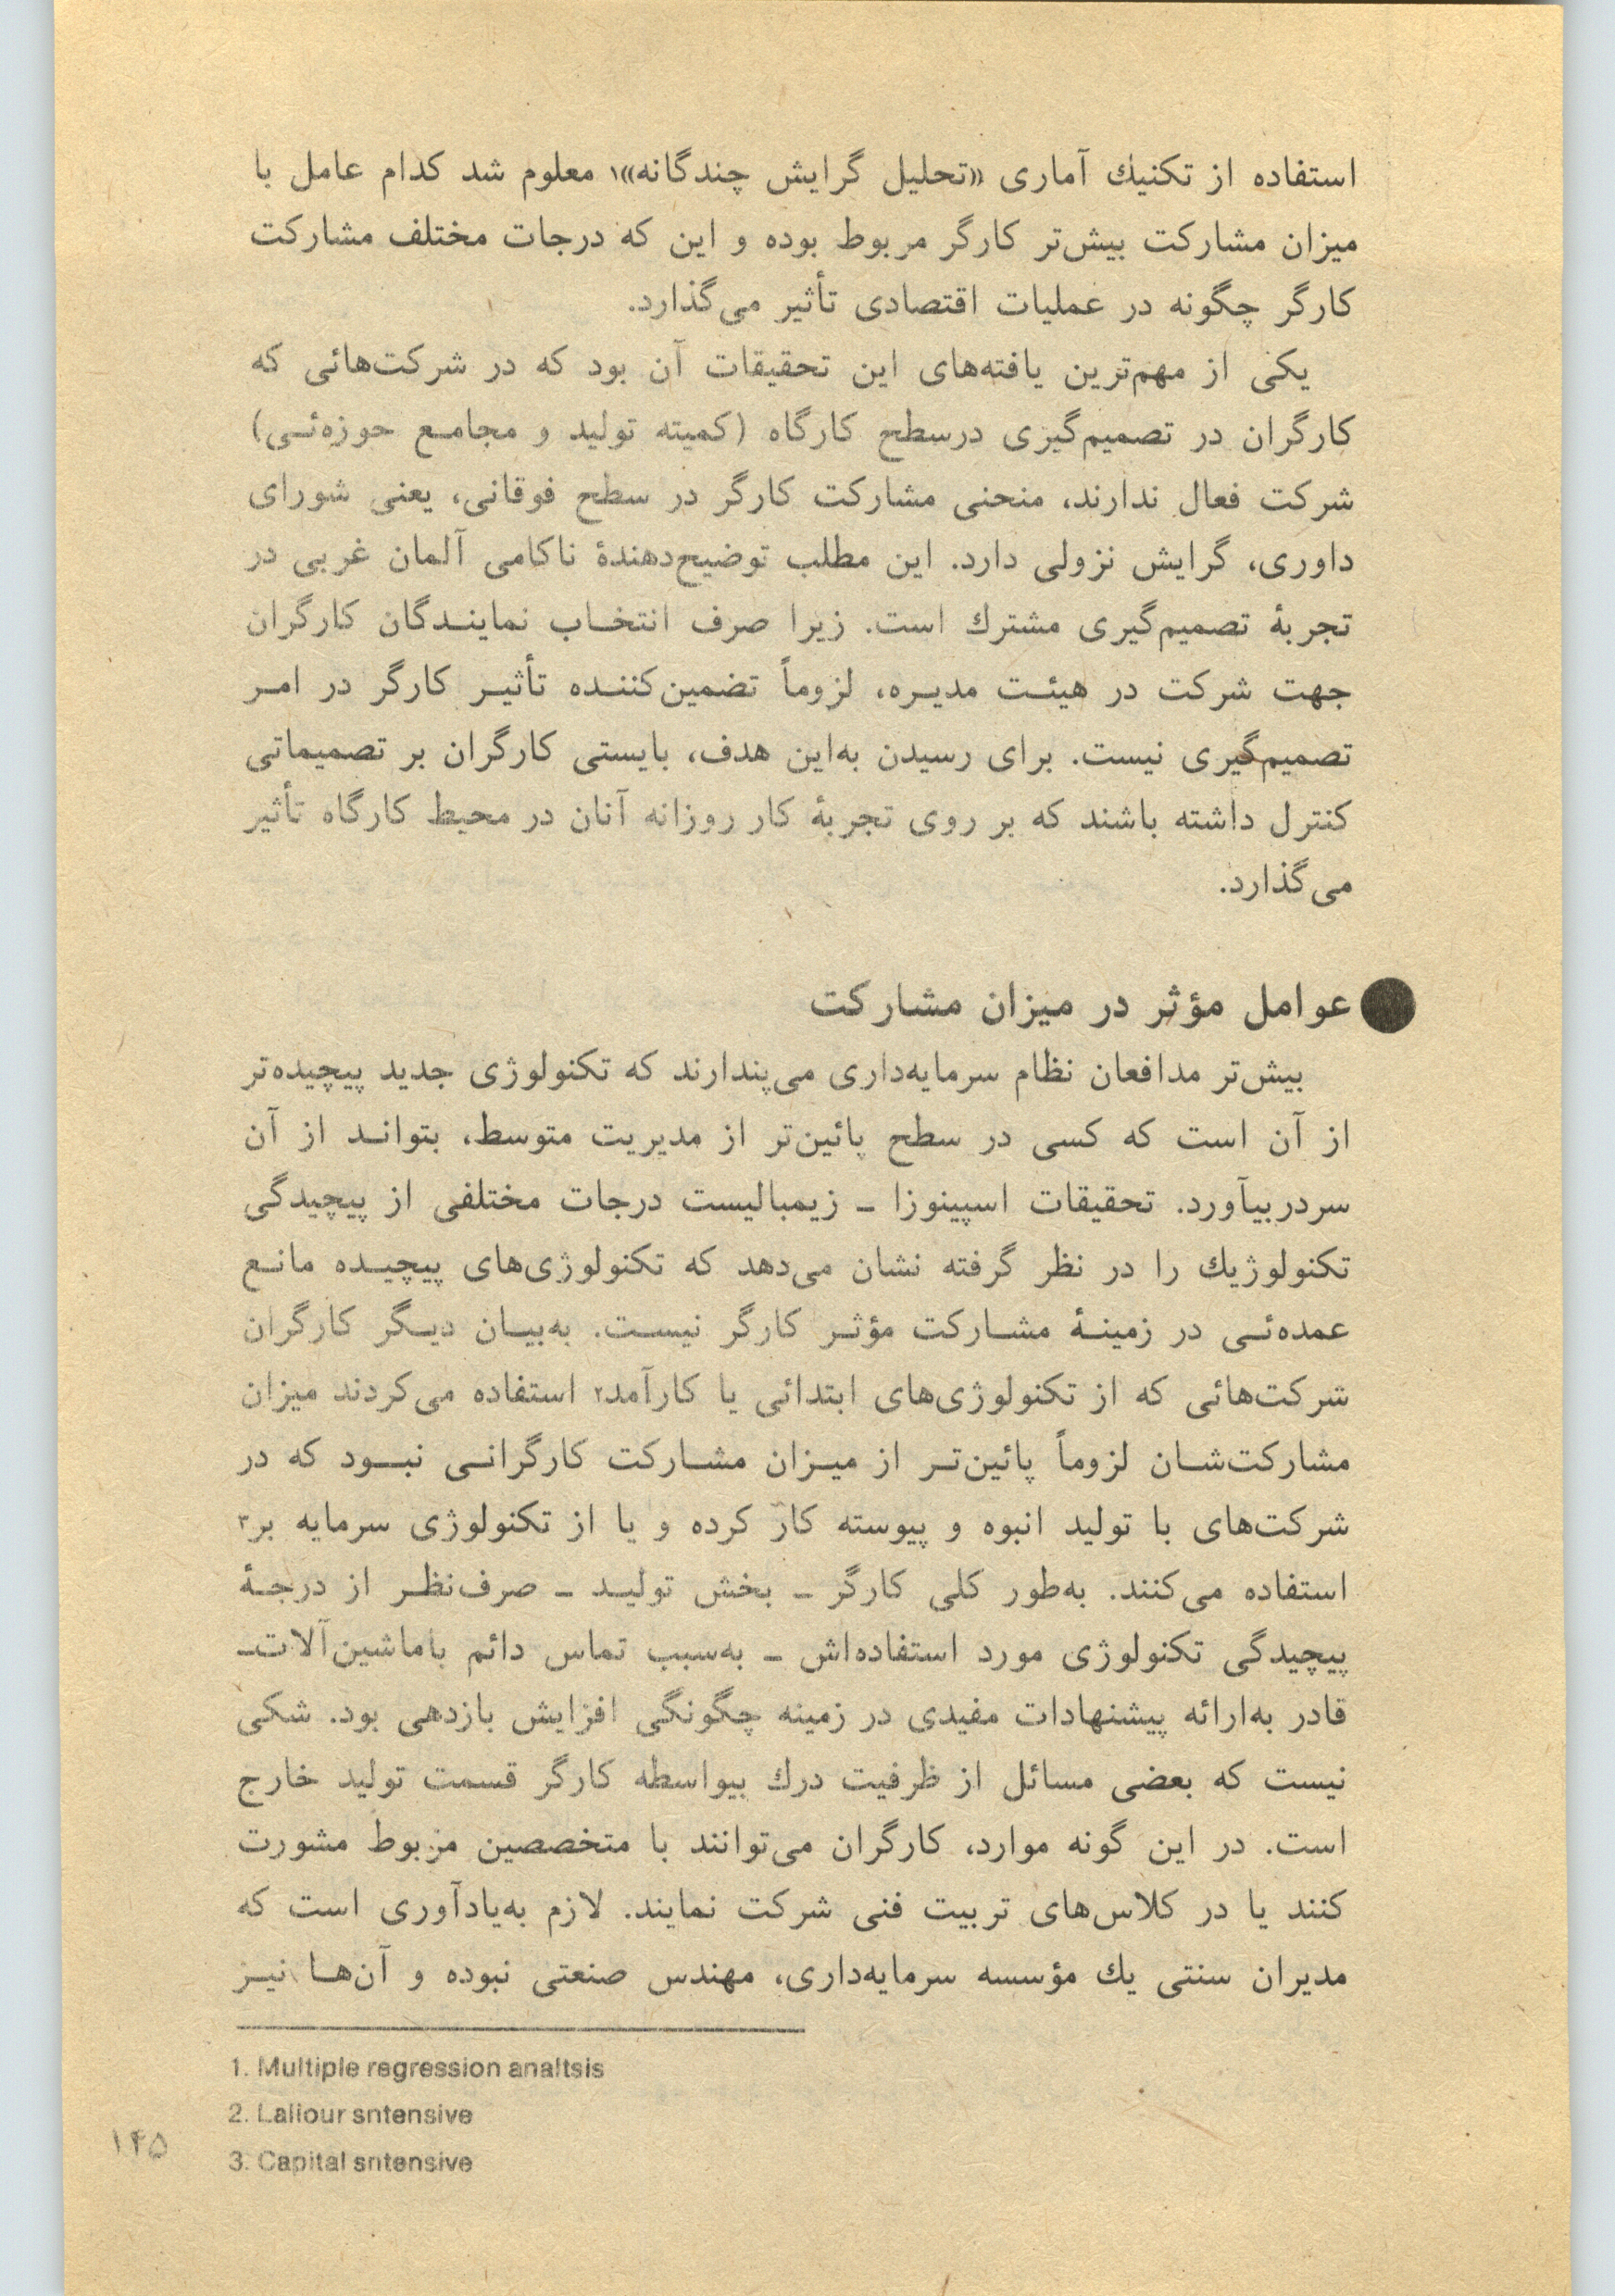 استفاده از تکنیك آماری «تحلیل گرایش چندگانه»۱ معلوم شد کدام عامل با
میزان مشارکت بیش‌تر کارگر مربوط بوده و این که درجات مختلف مشارکت
کارگر چگونه در عملیات اقتصادی تأثیر می‌گذارد.
یکی از مهم‌ترین یافته‌های این تحقیقات آن بود که در شرکت‌هائی که
کارگران در تصمیم‌گیری درسطح کارگاه (کمیته تولید و مجامع حوزه‌ئی)
شرکت فعال ندارند، منحنی مشارکت کارگر در سطح فوقانی، یعنی شورای
داوری، گرایش نزولی دارد. این مطلب توضیح‌دهندهٔ ناکامی آلمان غربی در
تجربهٔ تصمیم‌گیری مشترك است. زیرا صرف انتخاب نمایندگان کارگران
جهت شرکت در هیئت مدیره، لزوماً تضمین‌کننده تأثیر کارگر در امر
تصمیم‌گیری نیست. برای رسیدن به‌این هدف، بایستی کارگران بر تصمیماتی
کنترل داشته باشند که بر روی تجربهٔ کار روزانه آنان در محیط کارگاه تأثیر
می‌گذارد.
عوامل مؤثر در میزان مشارکت
بیش‌تر مدافعان نظام سرمایه‌داری می‌پندارند که تکنولوژی جدید پیچیده‌تر
از آن است که کسی در سطح پائین‌تر از مدیریت متوسط، بتواند از آن
سردربیآورد. تحقیقات اسپینوزا ـ زیمبالیست درجات مختلفی از پیچیدگی
تکنولوژیك را در نظر گرفته نشان می‌دهد که تکنولوژی‌های پیچیده مانع
عمده‌ئی در زمینهٔ مشارکت مؤثر کارگر نیست. به‌بیان دیگر کارگران
شرکت‌هائی که از تکنولوژی‌های ابتدائی یا کارآمد۲ استفاده می‌کردند میزان
مشارکت‌شان لزوماً پائین‌تر از میزان مشارکت کارگرانی نبود که در
شرکت‌های با تولید انبوه و پیوسته کار کرده و یا از تکنولوژی سرمایه بر۳
استفاده می‌کنند. به‌طور کلی کارگر ـ بخش تولید ـ صرف‌نظر از درجهٔ
پیچیدگی تکنولوژی مورد استفاده‌اش ـ به‌سبب تماس دائم باماشین‌آلات‌ـ
قادر به‌ارائه پیشنهادات مفیدی در زمینه چگونگی افزایش بازدهی بود. شکی
نیست که بعضی مسائل از ظرفیت درك بیواسطه کارگر قسمت تولید خارج
است. در این گونه موارد، کارگران می‌توانند با متخصصین مربوط مشورت
کنند یا در کلاس‌های تربیت فنی شرکت نمایند. لازم به‌یادآوری است که
مدیران سنتی یك مؤسسه سرمایه‌داری، مهندس صنعتی نبوده و آن‌ها نیز
1. Multiple regression analtsis
2. Laliour sntensive
3. Capital sntensive
۱۴۵